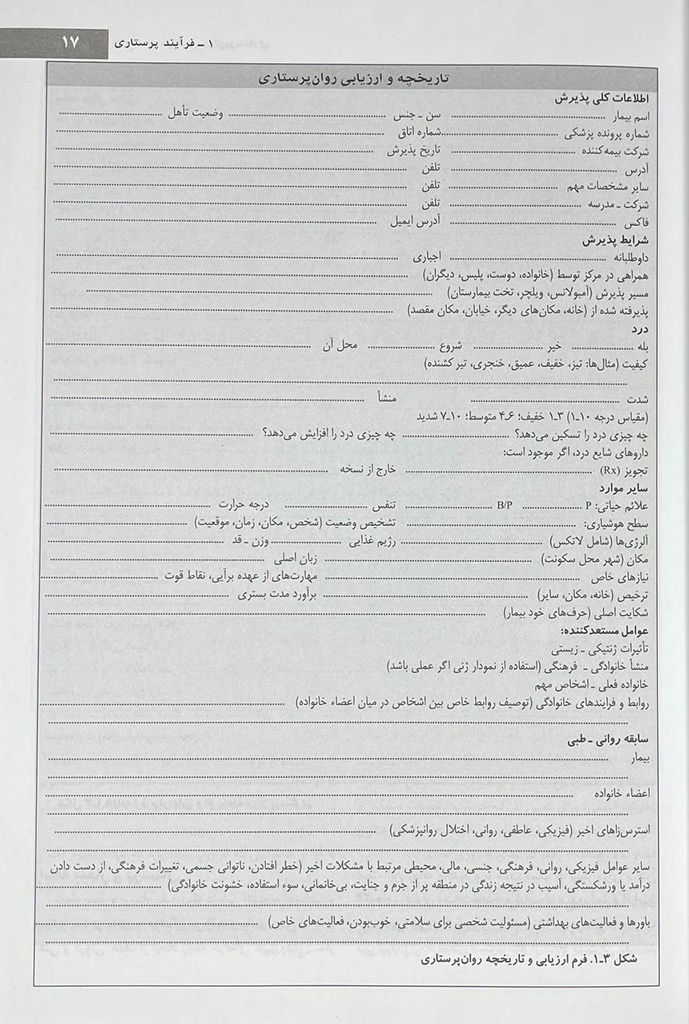 ۱ ـ فرآیند پرستاری ۱۷
تاریخچه و ارزیابی روان‌پرستاری
اطلاعات کلی پذیرش
اسم بیمار ........................ سن ـ جنس ........................ وضعیت تأهل ........................
شماره پرونده پزشکی ........................ شماره اتاق ........................
شرکت بیمه‌کننده ........................ تاریخ پذیرش ........................
آدرس ........................ تلفن ........................
سایر مشخصات مهم ........................ تلفن ........................
شرکت ـ مدرسه ........................ تلفن ........................
فاکس ........................ آدرس ایمیل ........................
شرایط پذیرش
داوطلبانه ........................ اجباری ........................
همراهی در مرکز توسط (خانواده، دوست، پلیس، دیگران) ........................
مسیر پذیرش (آمبولانس، ویلچر، تخت بیمارستان) ........................
پذیرفته شده از (خانه، مکان‌های دیگر، خیابان، مکان مقصد) ........................
درد
بله ................ خیر ................ شروع ................ محل آن ........................
کیفیت (مثال‌ها: تیز، خفیف، عمیق، خنجری، تیر کشنده)
........................
شدت ........................ منشأ ........................
(مقیاس درجه ۱۰ـ۱) ۳ـ۱ خفیف؛ ۶ـ۴ متوسط؛ ۱۰ـ۷ شدید
چه چیزی درد را تسکین می‌دهد؟ ........................ چه چیزی درد را افزایش می‌دهد؟ ........................
داروهای شایع درد، اگر موجود است:
تجویز (Rx) ........................ خارج از نسخه ........................
سایر موارد
علائم حیاتی: P ................ B/P ................ تنفس ................ درجه حرارت ................
سطح هوشیاری: ........................ تشخیص وضعیت (شخص، مکان، زمان، موقعیت) ........................
آلرژی‌ها (شامل لاتکس) ........................ رژیم غذایی ........................ وزن ـ قد ........................
مکان (شهر محل سکونت) ........................ زبان اصلی ........................
نیازهای خاص ........................ مهارت‌های از عهده برآیی، نقاط قوت ........................
ترخیص (خانه، مکان، سایر) ........................ برآورد مدت بستری ........................
شکایت اصلی (حرف‌های خود بیمار) ........................
عوامل مستعدکننده:
تأثیرات ژنتیکی ـ زیستی
منشأ خانوادگی ـ فرهنگی (استفاده از نمودار ژنی اگر عملی باشد)
خانواده فعلی ـ اشخاص مهم
روابط و فرایندهای خانوادگی (توصیف روابط خاص بین اشخاص در میان اعضاء خانواده) ........................
........................
سابقه روانی ـ طبی
بیمار ........................
........................
اعضاء خانواده ........................
........................
استرس‌زاهای اخیر (فیزیکی، عاطفی، روانی، اختلال روانپزشکی) ........................
........................
سایر عوامل فیزیکی، روانی، فرهنگی، جنسی، مالی، محیطی مرتبط با مشکلات اخیر (خطر افتادن، ناتوانی جسمی، تغییرات فرهنگی، از دست دادن
درآمد یا ورشکستگی، آسیب در نتیجه زندگی در منطقه پر از جرم و جنایت، بی‌خانمانی، سوء استفاده، خشونت خانوادگی) ........................
........................
باورها و فعالیت‌های بهداشتی (مسئولیت شخصی برای سلامتی، خوب‌بودن، فعالیت‌های خاص) ........................
........................
شکل ۳ـ۱. فرم ارزیابی و تاریخچه روان‌پرستاری